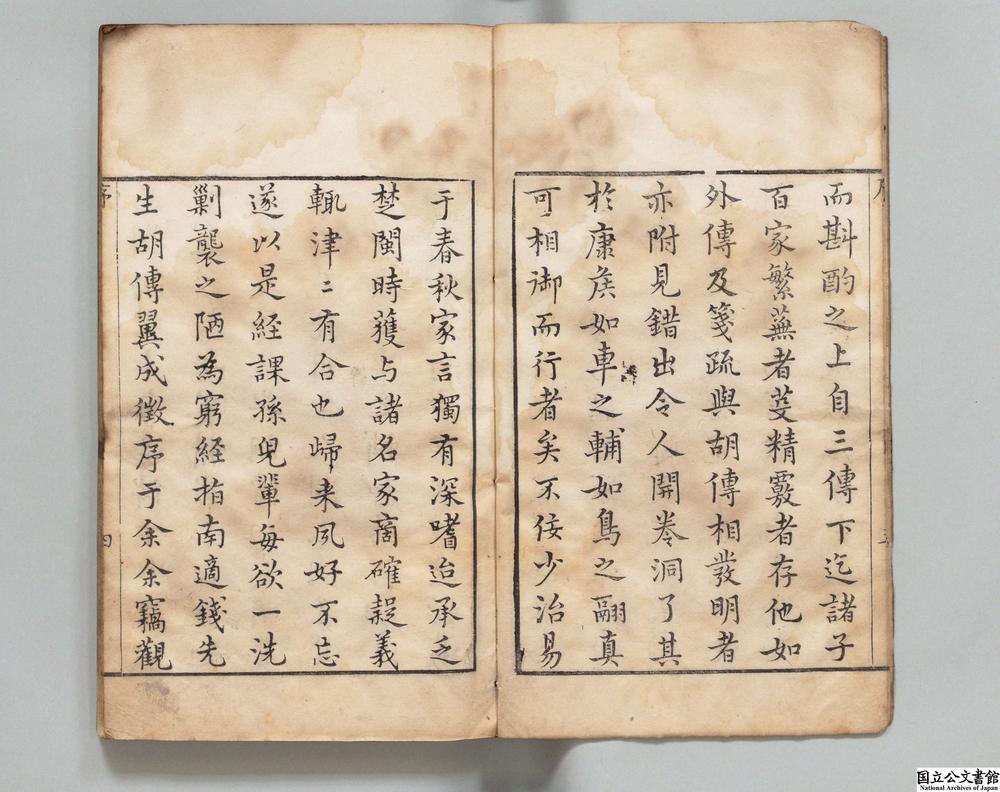 而斟酌之上自三傳下迄諸子
百家繁蕪者芟精覈者存他如
外傳及箋疏與胡傳相發明者
亦附見錯出令人開卷洞了其
於康矦如車之輔如鳥之翮真
可相御而行者矣不佞少治易
于春秋家言獨有深嗜迨承乏
楚閩時獲与諸名家商確疑義
輒津〻有合也歸来夙好不忘
遂以是經課孫兒輩每欲一洗
剿襲之陋為窮經指南適錢先
生胡傳翼成徵序于余余竊觀
序
四
国立公文書館
National Archives of Japan